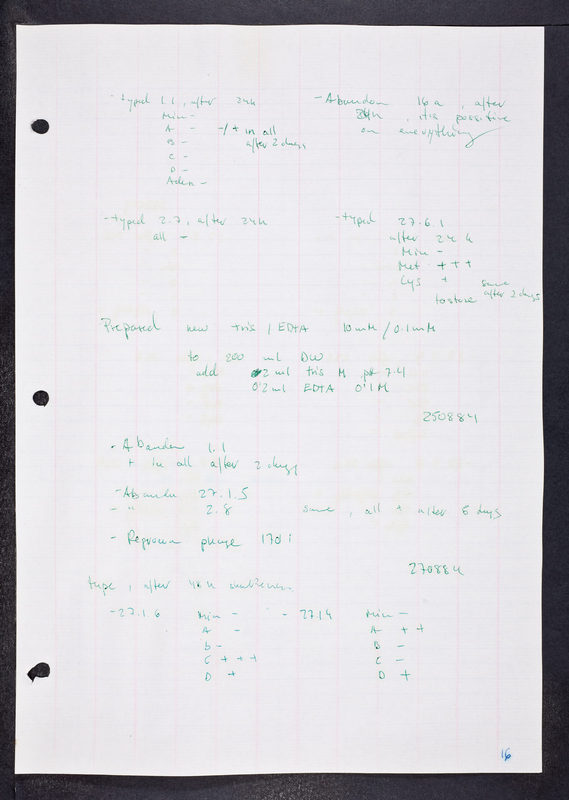 - typed 1.1, after 24h
Min -
A - -/+ in all
B - after 2 days
C -
D -
Aden -
- Abandon 16a, after
24h, it is possitive
on everything
- typed 2.7, after 24h
all -
- typed 27.6.1
after 24h
Min -
Met +++
Cys + same
to store after 2 days
Prepared new tris/EDTA 10mM/0.1mM
to 200 ml DW
add 2 ml tris M pH 7.4
0.2 ml EDTA 0.1M
250884
- Abandon 1.1
+ in all after 2 days
- Abandon 27.1.5
- " 2.8 same, all + after 5 days
- Regrown phage 170 i
270884
type, after 48h
- 27.1.6 Min -
A -
b -
C +++
D +
- 27.1.4 Min -
A ++
B -
C -
D +
16